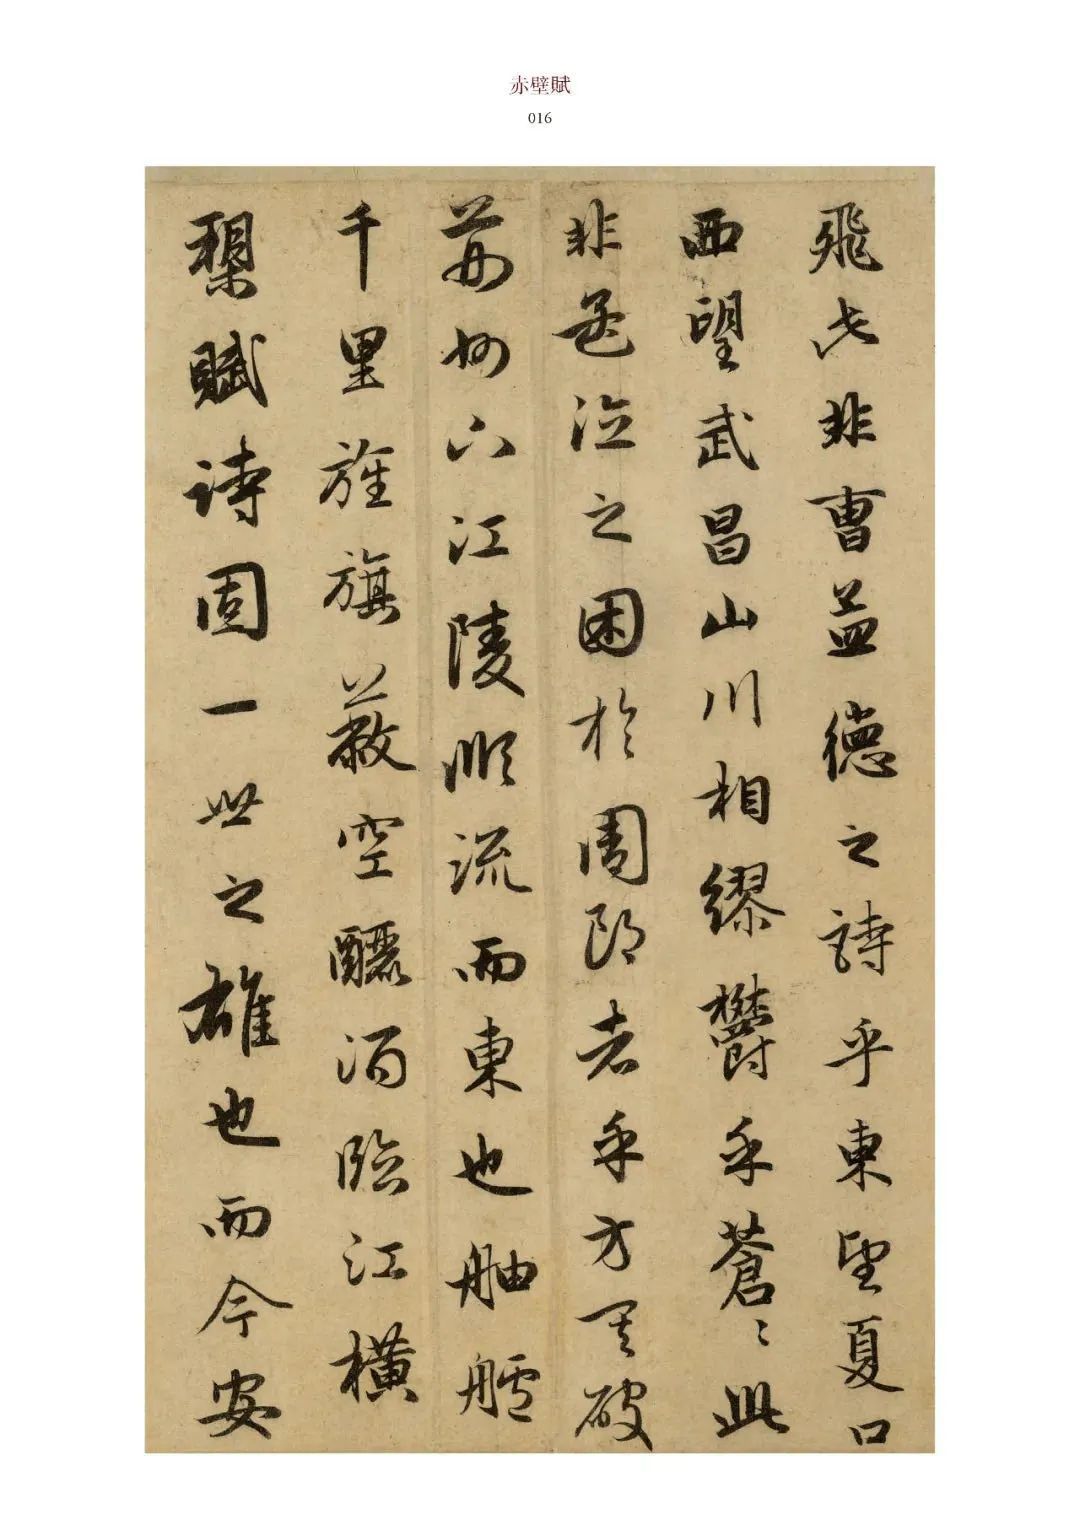 赤壁賦
016
飛此非曹孟德之詩乎東望夏口
西望武昌山川相繆鬱乎蒼〻此
非孟德之困於周郎者乎方其破
荊州下江陵順流而東也舳艫
千里旌旗蔽空釃酒臨江橫
槊賦詩固一世之雄也而今安